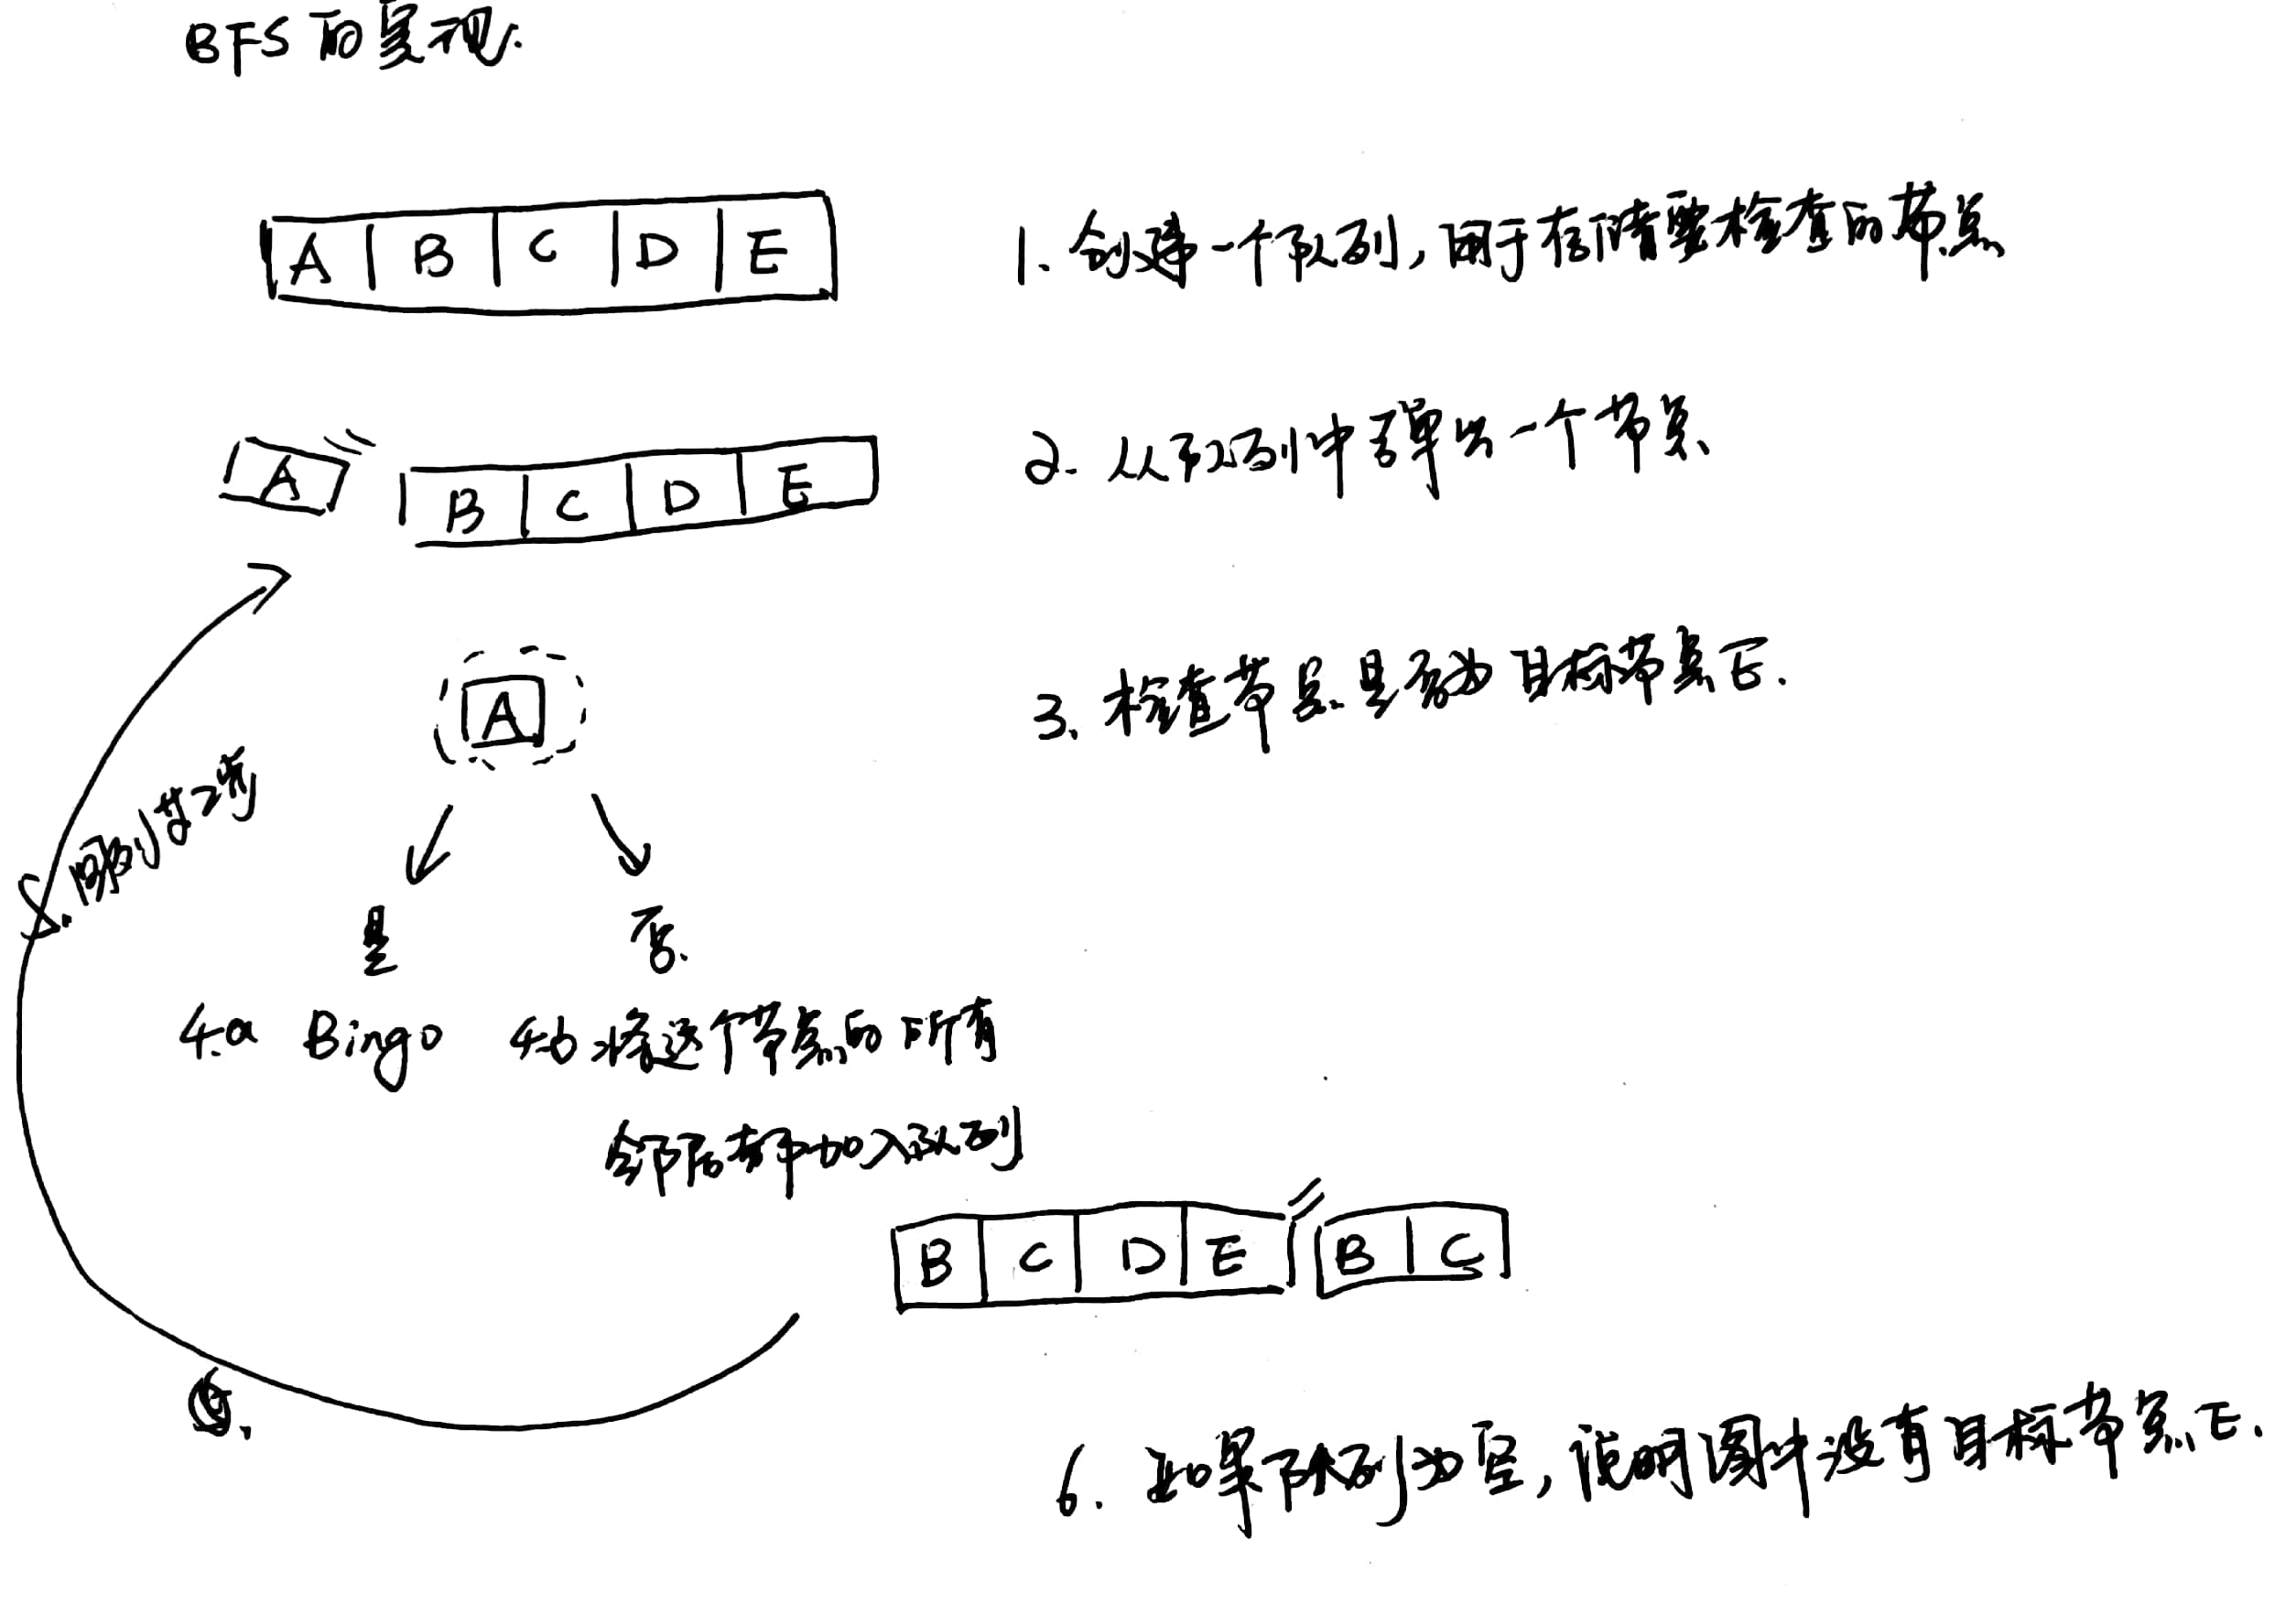 BFS的复现.
A B C D E
1. 创建一个队列,用于存储要检查的节点
A B C D E
2. 从队列中弹出一个节点
A
3. 检查节点是否为目标节点E.
5. 回到步骤2
是 否.
4.a Bingo 4.b 将这个节点的所有
邻居都加入队列
B C D E B C
6. 如果队列为空,说明图中没有目标节点E.